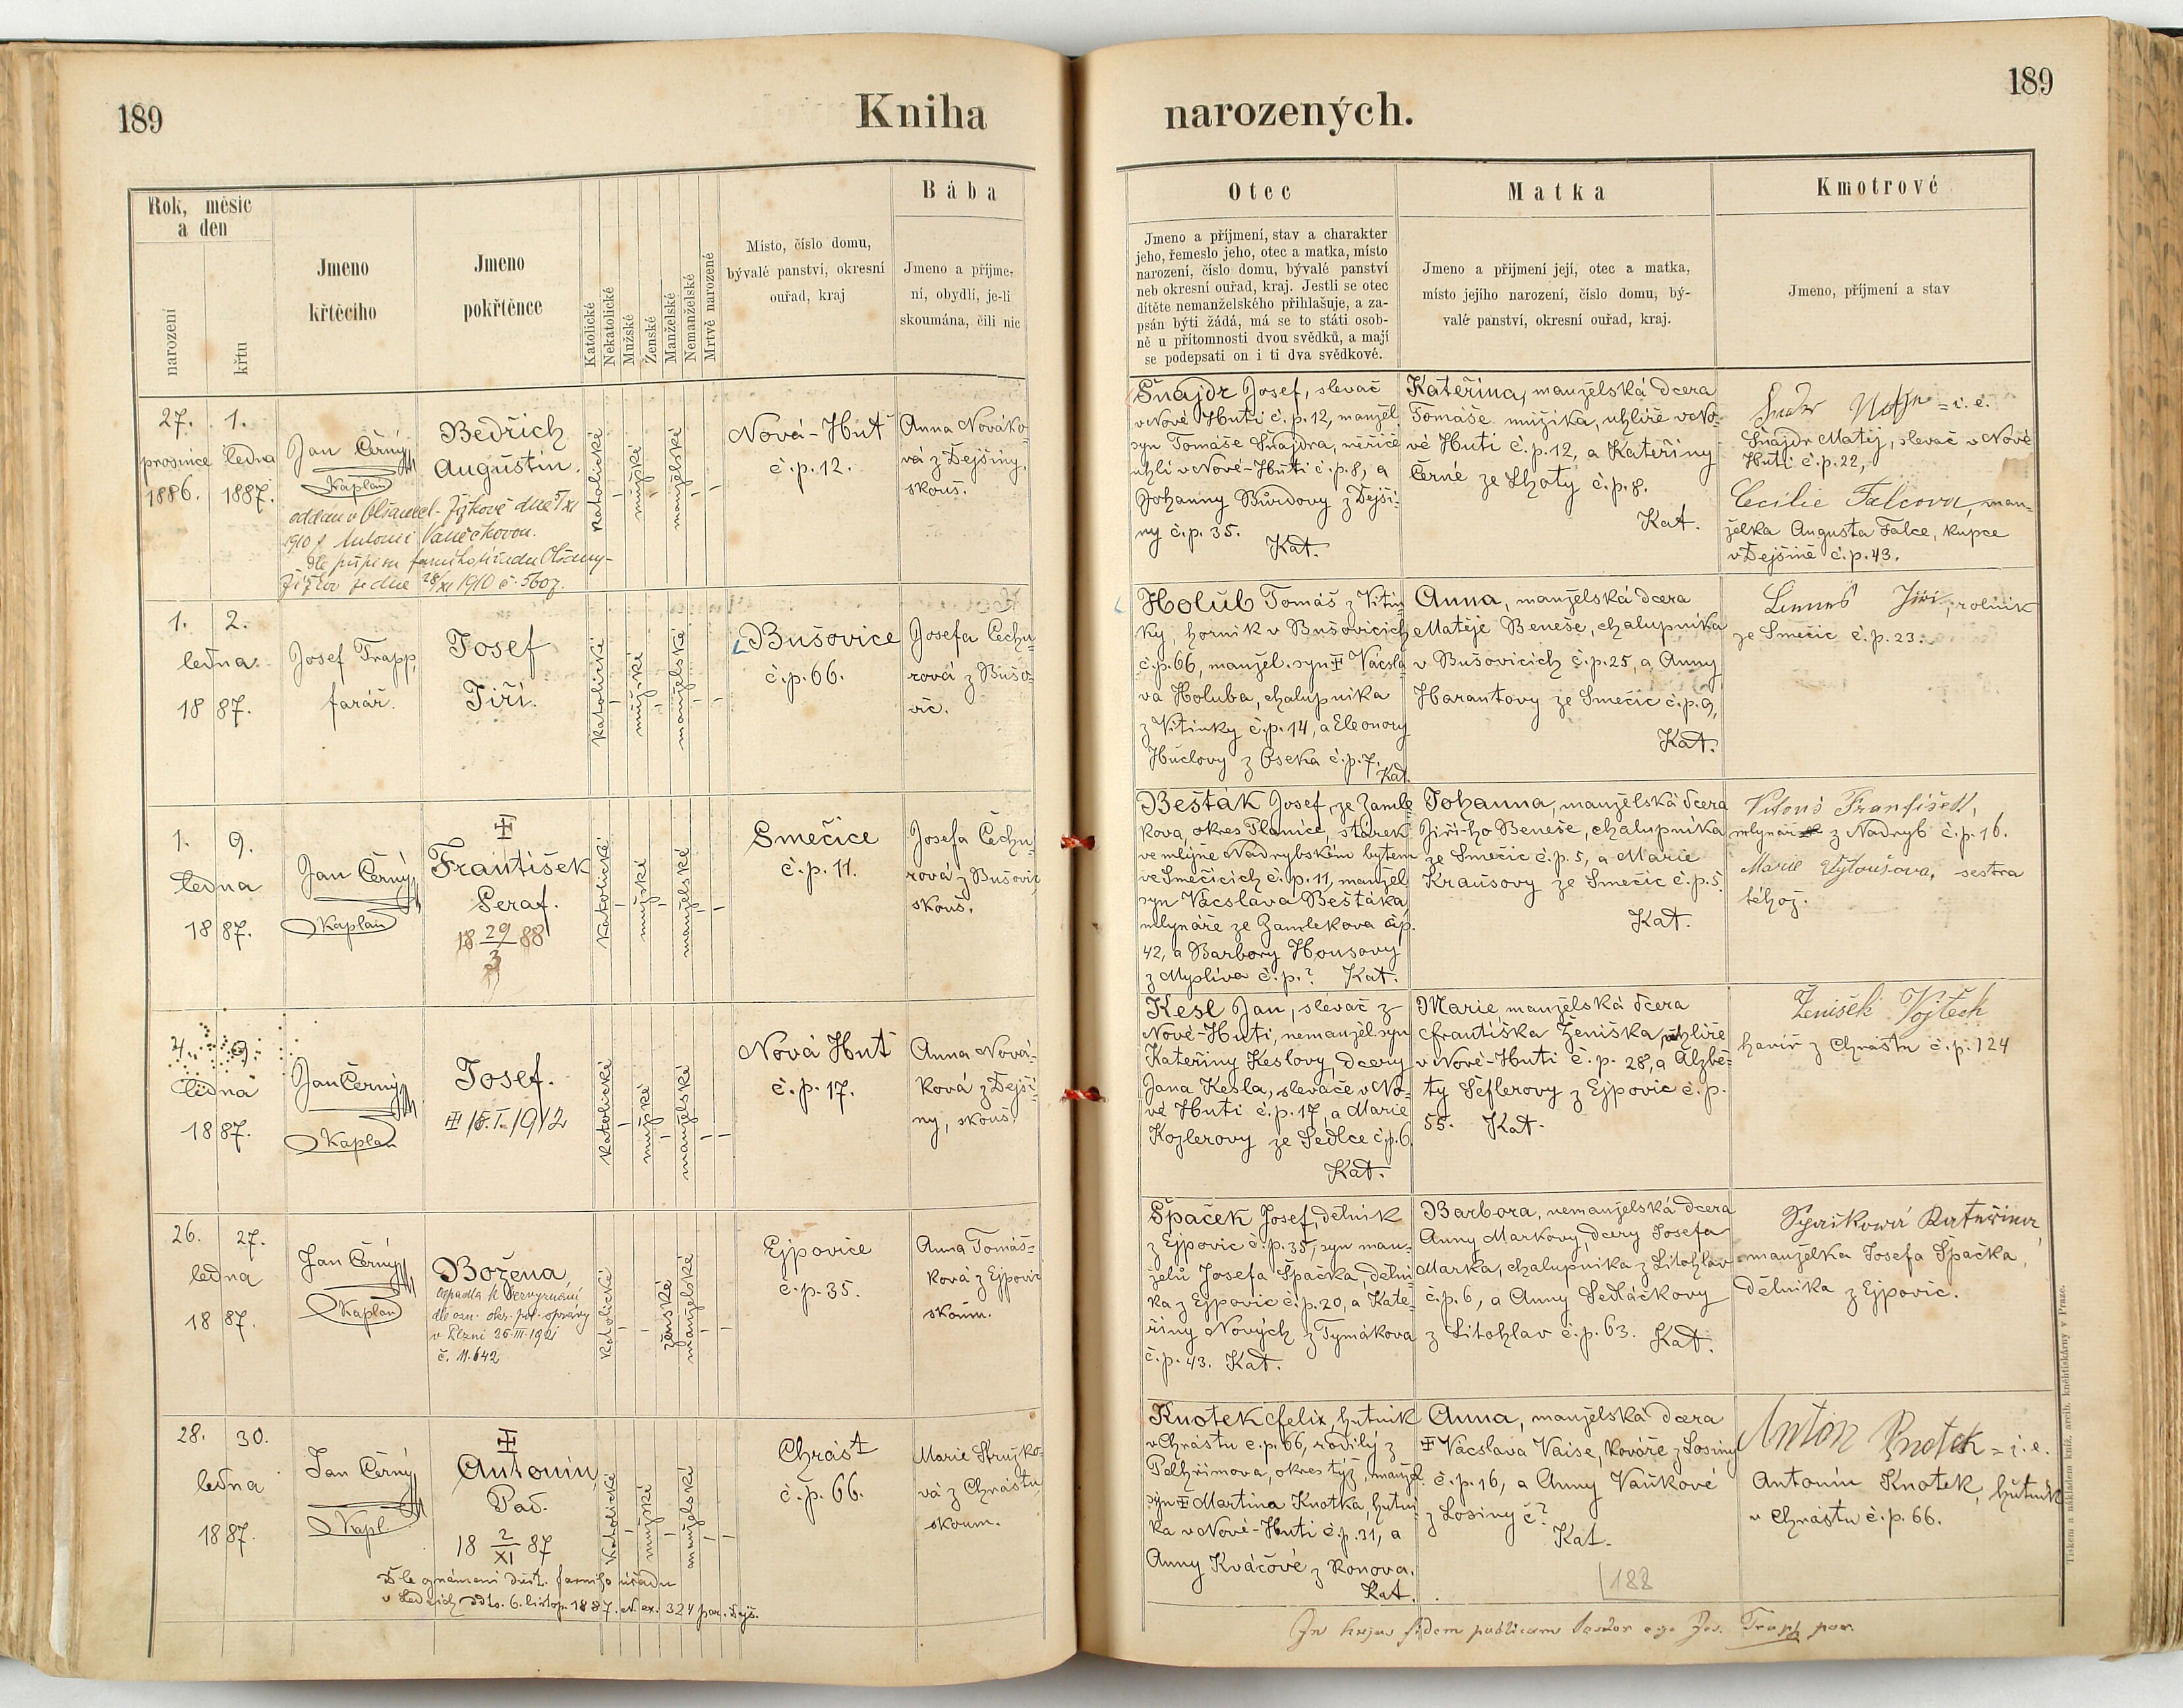 189
Kniha
narozených.
189
Rok, měsíc
a den
narození
křtu
Jmeno
křtěcího
Jmeno
pokřtěnce
Katolické
Nekatolické
Mužské
Ženské
Manželské
Nemanželské
Mrtvě narozené
Místo, číslo domu,
bývalé panství, okresní
ouřad, kraj
Bába
Jmeno a příjme-
ní, obydlí, je-li
skoumána, čili nic
Otec
Jmeno a příjmení, stav a charakter
jeho, řemeslo jeho, otec a matka, místo
narození, číslo domu, bývalé panství
neb okresní ouřad, kraj. Jestli se otec
dítěte nemanželského přihlašuje, a za-
psán býti žádá, má se to státi osob-
ně u přítomnosti dvou svědků, a mají
se podepsati on i ti dva svědkové.
Matka
Jmeno a přijmení její, otec a matka,
místo jejího narození, číslo domu, bý-
valé panství, okresní ouřad, kraj.
Kmotrové
Jmeno, příjmení a stav
27. 1.
prosince ledna
1886. 1887.
Jan Černý
Kaplan
Bedřich
Augustin.
katolické
mužské
manželské
Nová-Huť
č.p. 12.
Anna Nováko-
vá z Dejšiny,
skouš.
1910 s Antonií Vaněčkovou.
Žižkov ze dne 28/XI 1910 č. 5607.
Šnajdr Josef, slevač
v Nové Huti č.p. 12, manžel.
syn Tomáše Šnajdra, měřiče
uhlí v Nové-Huti č.p. 8, a
Johanny Bůrdovy z Dejši-
ny č.p. 35.
Kat.
Kateřina, manželská dcera
Tomáše mužíka, uhlíře v No-
vé Huti č.p. 12, a Kateřiny
Černé ze Lhoty č.p. 8.
Kat.
= i. e.
Šnajdr Matěj, slevač v Nové
Huti č.p. 22,
Cecilie Falcova, man-
želka Augusta Falce, kupce
v Dejšině č.p. 43.
1. 2.
ledna.
1887.
Josef Trapp,
farář.
Josef
Jiří.
katolické
mužské
manželské
Bušovice
č.p. 66.
Josefa Čechu-
rová z Bušo-
vic.
Holub Tomáš z Vitin-
ky, horník v Bušovicích
č.p. 66, manžel. syn Vácsla-
va Holuba, chalupníka
z Vitinky č.p. 14, a Eleonory
Hůclovy z Oseka č.p. 7.
Kat.
Anna, manželská dcera
Matěje Beneše, chalupníka
v Bušovicích č.p. 25, a Anny
Harantovy ze Smečic č.p. 9,
Kat.
Jiří, rolník
ze Smečic č.p. 23.
1. 9.
ledna
1887.
Jan Černý
Kaplan
František
Seraf.
18 29/3 88
katolické
mužské
manželské
Smečice
č.p. 11.
Josefa Čechu-
rová z Bušovic
skouš.
Bešták Josef, ze Zamle-
kova, okres Planice, stárek
ve mlýně Nadrybském bytem
ve Smečicích č.p. 11, manžel.
syn Vácslava Beštáka
mlynáře ze Zamlekova č.p.
42, a Barbory Housovy
z Myslíva č.p.? Kat.
Johanna, manželská dcera
Jiřího Beneše, chalupníka
ze Smečic č.p. 5, a Marie
Krausovy ze Smečic č.p. 5.
Kat.
Vitouš František,
mlynář z Nadryb č.p. 16.
Marie Vytoušova, sestra
téhož.
4. 9.
ledna
1887.
Jan Černý
Kaplan
Josef.
16. I. 1912
katolické
mužské
manželské
Nová Huť
č.p. 17.
Anna Nová-
ková z Dejši-
ny, skouš.
Kesl Jan, slévač z
Nové-Huti, nemanžel. syn
Kateřiny Keslovy, dcery
Jana Kesla, slevače v No-
vé Huti č.p. 17, a Marie
Kozlerovy ze Sedlce č.p. 6.
Kat.
Marie, manželská dcera
Františka Ženíška, uhlíře
v Nové-Huti č.p. 28, a Alžbě-
ty Šéflerovy z Ejpovic č.p.
55. Kat.
Ženíšek Vojtěch
havíř z Chrástu č.p. 124
26. 27.
ledna
1887.
Jan Černý
Kaplan
Božena
odpadla k bezvyznání
dle ozn. okr. pol. správy
v Plzni 26-III-1921
č. 11.642
katolické
ženské
manželské
Ejpovice
č.p. 35.
Anna Tomáš-
ková z Ejpovic
skoum.
Špaček Josef, dělník
z Ejpovic č.p. 35, syn man-
želů Josefa Špačka, dělní-
ka z Ejpovic č.p. 20, a Kate-
řiny Nových z Tymákova
č.p. 43. Kat.
Barbora, nemanželská dcera
Anny Markovy, dcery Josefa
Marka, chalupníka z Litohlav
č.p. 6, a Anny Sedláčkovy
z Litohlav č.p. 63. Kat.
Špačková Kateřina,
manželka Josefa Špačka,
dělníka z Ejpovic.
28. 30.
ledna
1887.
Jan Černý
Kapl.
Antonín
Pad.
18 2/XI 87
Dle oznámení důst. farního úřadu
katolické
mužské
manželské
Chrást
č.p. 66.
Marie Stružko-
vá z Chrástu
skoum.
Knotek Felix, hutník
v Chrástu č.p. 66, rodilý z
Pelhřimova, okres týž, manžel.
syn Martina Knotka, hutní-
ka v Nové-Huti č.p. 31, a
Anny Kváčové z Ronova.
Kat.
Anna, manželská dcera
Vácslava Vaise, kováře z Losiny
č.p. 16, a Anny Vaňkové
z Losiny č.?
Kat.
188
Anton Knotek = i. e.
Antonín Knotek, hutník
v Chrástu č.p. 66.
Tiskem a nákladem kníž. arcib. knihtiskárny v Praze.